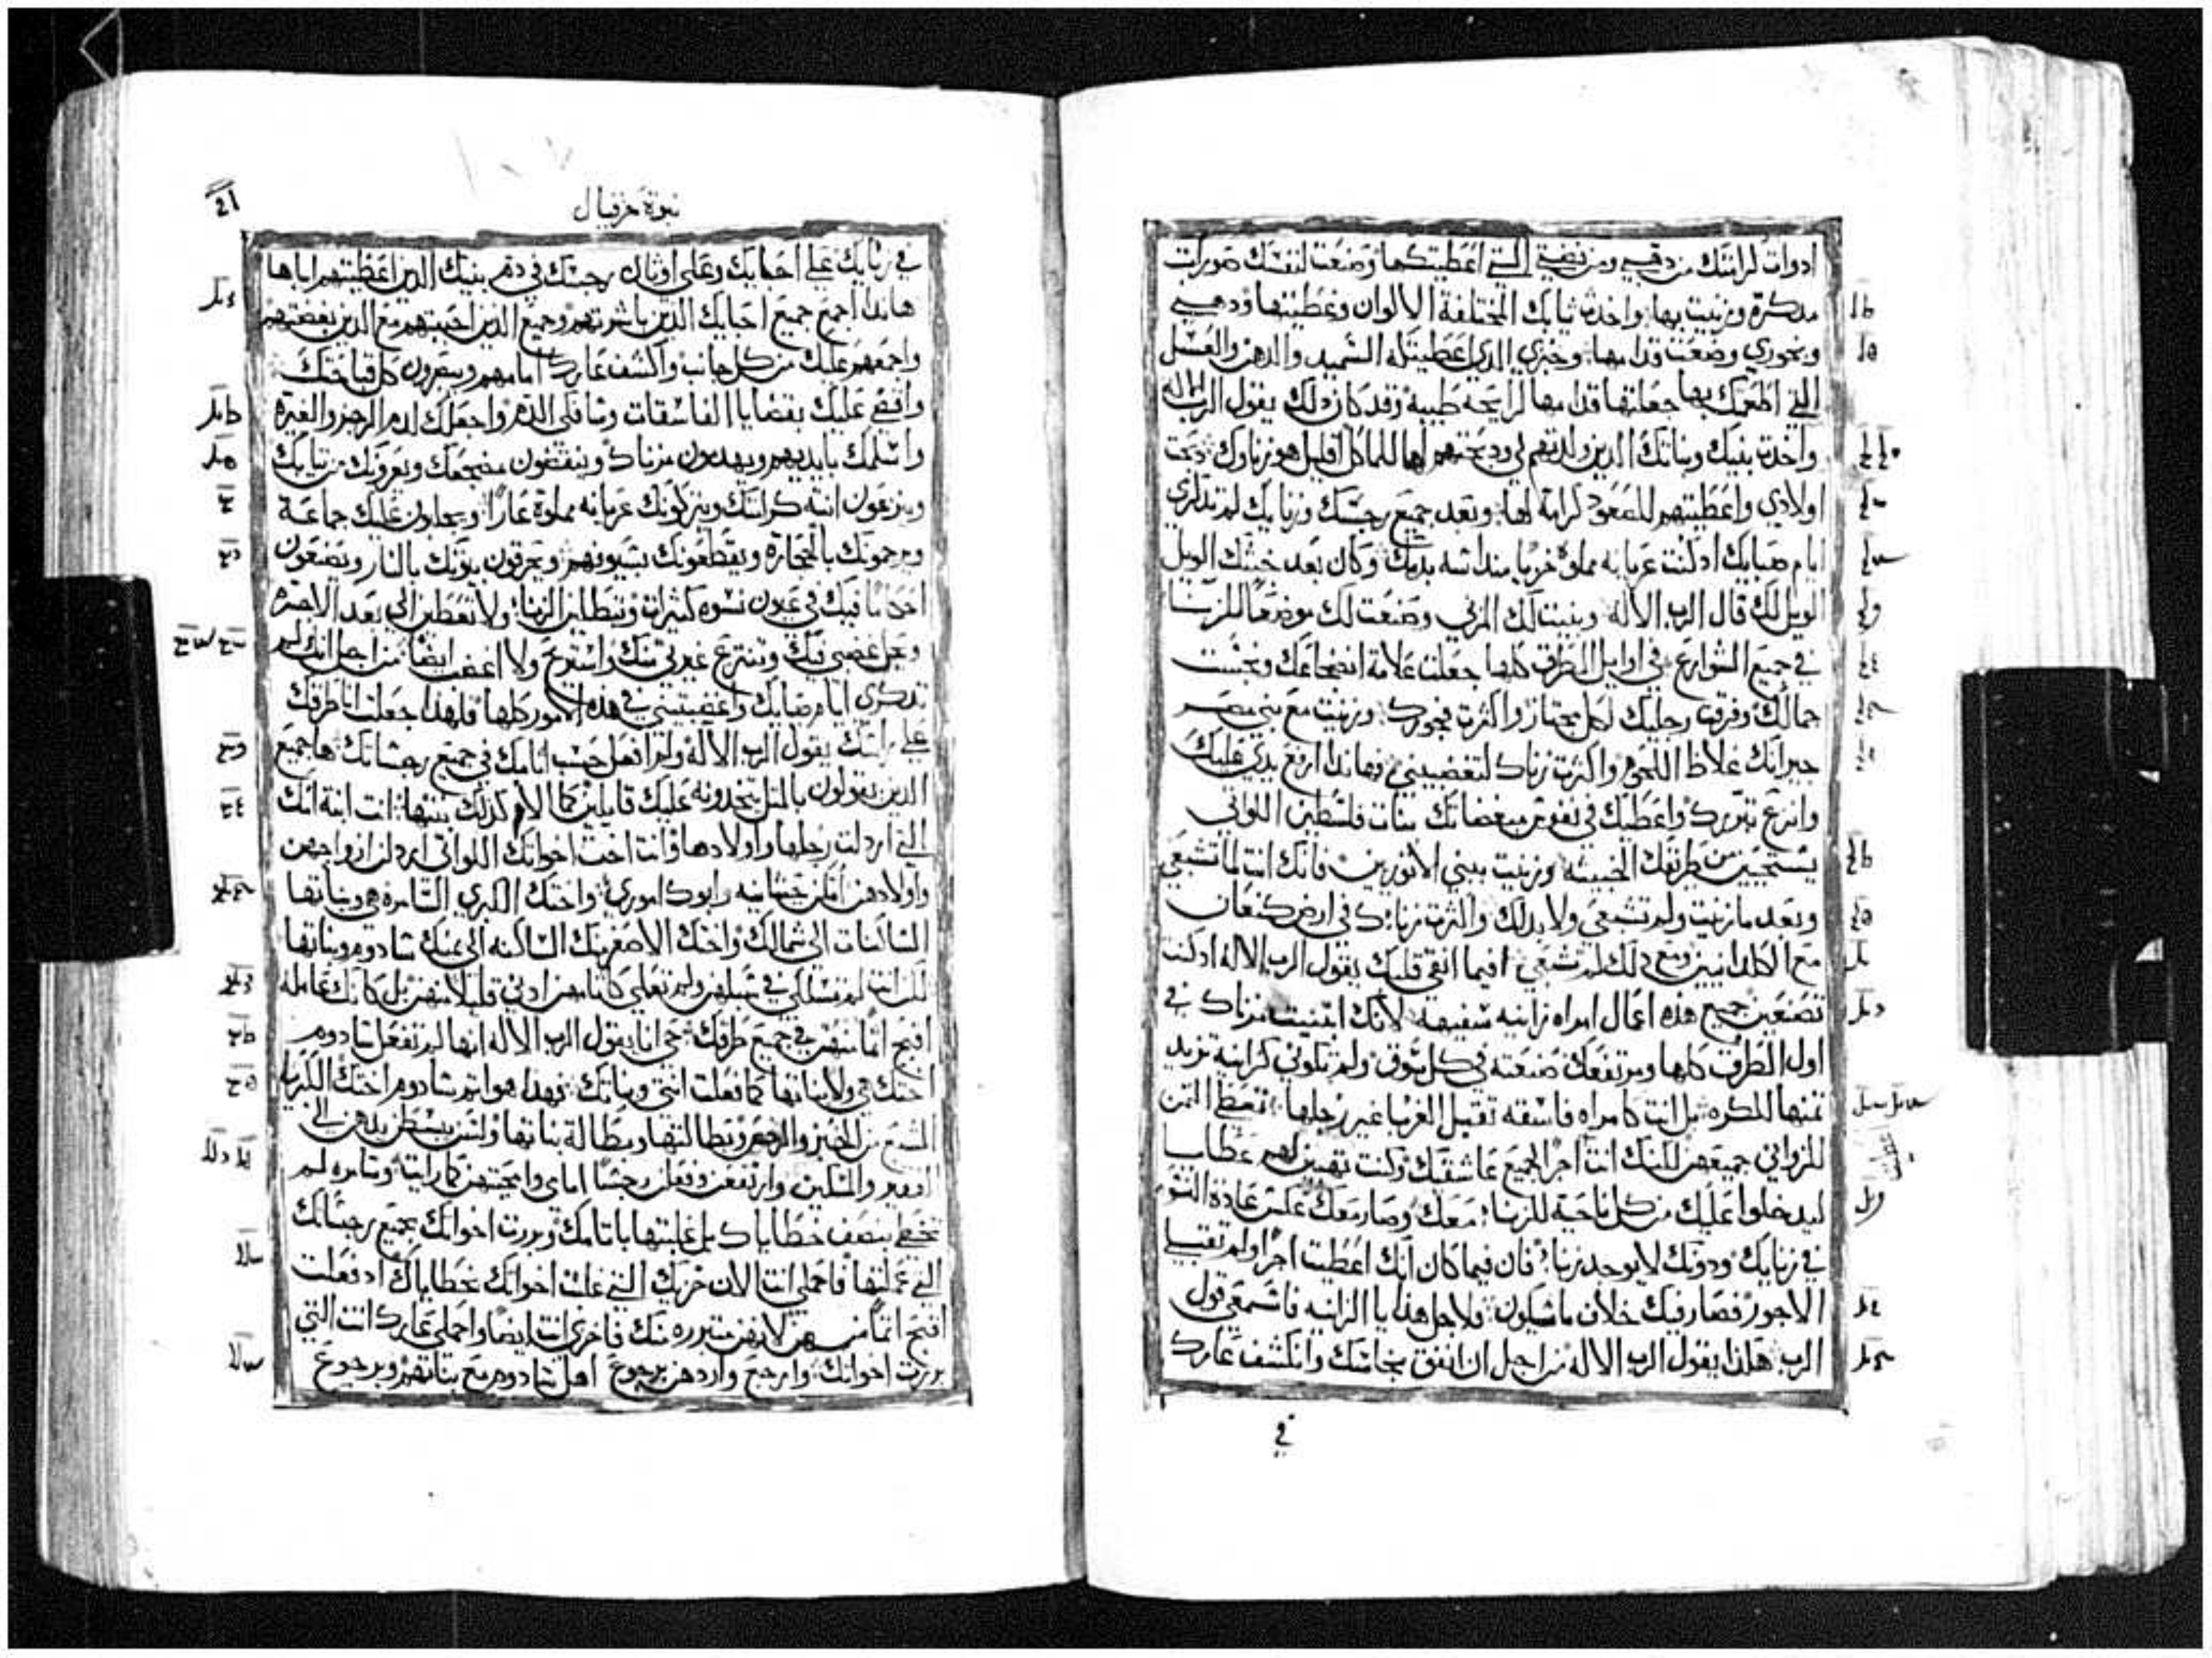 ادوات كرامتك من دهبي ومن فضتي التي اعطيتكها وصنعت لنفسك صورات
مدكرة وزنيت بها واخدت ثيابك المختلفة الالوان وغطيتها ودهني
وبخوري وضعت قدامها وخبزي الدي اعطيتكه السميد والدهن والعسل
التي اطعمتك بها جعلتها قدامها لرايحة طيبة وقد كان دلك يقول الرب الاله
واخدت بنيك وبناتك الدين ولدتهم لي ودبحتهم لها للماكل اقليل هو زناوك دبحت
اولادي واعطيتهم للصعود كرامة لها وبعد جميع رجسك وزنايك لم تدكري
ايام صبايك اد كنت عريانه مملوة خزيا منداسه بدمك وكان بعد خبثك الويل
الويل لك قال الرب الاله وبنيت لك المزني وصنعت لك موضعا للزنا
في جميع الشوارع في اوايل الطرق كلها جعلت علامة انضجاعك ونجست
جمالك وفرقت رجليك لكل مجتاز واكثرت فجورك وزنيت مع بني مصر
جيرانك غلاظ اللحم واكثرت زناك لتغضبيني فهاندا ارفع يدي عليك
وانزع تبريرك واعطيك في نفوس مبغضاتك بنات فلسطين اللواتي
يستحيين من طرقك الخبيثه وزنيت ببني الاثوريين فانك انت لما تشبعي
وبعد ما زنيت ولم تشبعي ولا بدلك واكثرت زناك في ارض كنعان
مع الكلدانيين ومع دلك لم تشبعي افيما انقي قلبك يقول الرب الاله اد كنت
تصنعين جميع هده اعمال امراه زانيه سفيهه لانك ابتنيت مزناك في
اول الطرق كلها ومرتفعك صنعته في كل سوق ولم تكوني كزانية تزيد
ثمنها للمكره بل انت كامراه فاسقه تقبل الغربا غير رجلها تعطي الثمن
للزواني جميعهن لكنك انت اجر الجميع عاشقيك وكنت تهبين لهم عطايا
ليدخلوا عليك من كل ناحية للزنا معك وصار معك عكس عادة النسو
في زنايك ودونك لا يوجد زنا فان فيما كان انك اعطيت اجرا ولم تقتبلي
الاجور فصار فيك خلاف ما سيكون فلاجل هدا يا الزانيه فاسمعي قول
الرب هكدا يقول الرب الاله من اجل ان انفق نحاسك وانكشف عارك
في
21
نبوة حزقيال
في زنايك على احبايك وعلى اوثان رجسك في دم بنيك الدين اعطيتهم اياها
هاندا اجمع جميع احبايك الدين باشرتهم وجميع الدين احببتهم مع الدين بغضتيهم
واجمعهم عليك من كل جانب واكشف عارك امامهم وينظرون كل قباحتك
واقضي عليك بقضايا الفاسقات وسافكي الدم واجعلك لدم الرجز والغيرة
واسلمك بايديهم ويهدمون مزناك وينقضون مضجعك ويعرونك من ثيابك
وينزعون انية كرامتك ويتركونك عريانه مملوة عارا ويجلبون عليك جماعة
ويرجمونك بالحجارة ويقطعونك بسيوفهم ويحرقون بيوتك بالنار ويصنعون
احكاما فيك في عيون نسوه كثيرات وتبطلين الزنا ولا تعطين الي بعد الاجره
ويحل غضبي فيك وتنتزع غيرتي منك واستريح ولا اغضب ايضا من اجل انك لم
تدكري ايام صبايك واغضبتيني في هده الامور كلها فلهدا جعلت انا طرقك
على راسك يقول الرب الاله ولم افعل حسب اتامك في جميع رجساتك ها جميع
الدين يقولون بالمثل يتخدونه عليك قايلين كما الام كدلك بنتها انت ابنة امك
التي اردلت رجلها واولادها وانت اخت اخواتك اللواتي اردلن ازواجهن
واولادهن امكن حيثانيه وابوك اموري واختك الكبري السامره هي وبناتها
الساكنات الى شمالك واختك الاصغر منك الساكنه الى يمينك سادوم وبناتها
لكن انت لم تسلكي في سبلهن ولم تعملي كاتامهن ادني قليلا منهن بل كانك عامله
اقبح اتما منهن في جميع طرقك حي انا يقول الرب الاله انها لم تفعل سادوم
اختك هي ولا بناتها كما فعلت انتي وبناتك فهدا هو اتم سادوم اختك الكبريا
الشبع من الخبز والرجع وبطالتها وبطالة بناتها ولسن يبسطن يدهن الى
الفقير والمسكين وارتفعن وفعلن رجسا امامي وابحتهن كما رايت وسامره لم
تخطي بنصف خطاياك بل غلبتها باتامك وبررت اخواتك بجميع رجساتك
التي عملتها فاحملي انت الان خزيك التي غلبت اخواتك بخطاياك اد فعلت
اقبح اتما منهن لانهن متبرره منك فاخزي انت ايضا واحملي عارك انت التي
بررت اخواتك وارجع واردهن برجوع اهل سادوم مع بناتهم وبرجوع